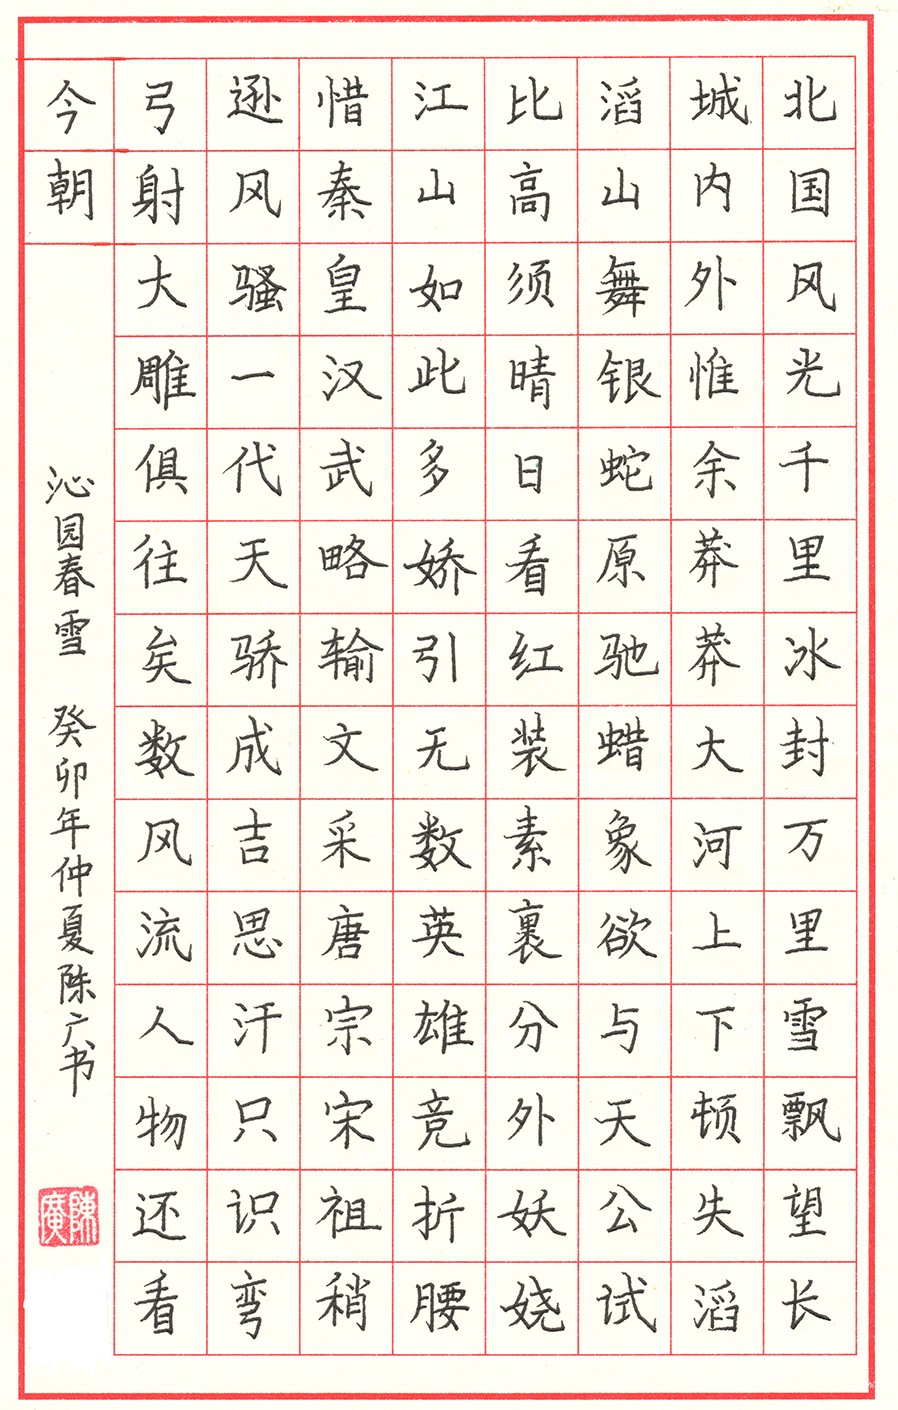 北国风光千里冰封万里雪飘望长
城内外惟余莽莽大河上下顿失滔
滔山舞银蛇原驰蜡象欲与天公试
比高须晴日看红装素裹分外妖娆
江山如此多娇引无数英雄竞折腰
惜秦皇汉武略输文采唐宗宋祖稍
逊风骚一代天骄成吉思汗只识弯
弓射大雕俱往矣数风流人物还看
今朝
沁园春雪 癸卯年仲夏陈广书
陳廣